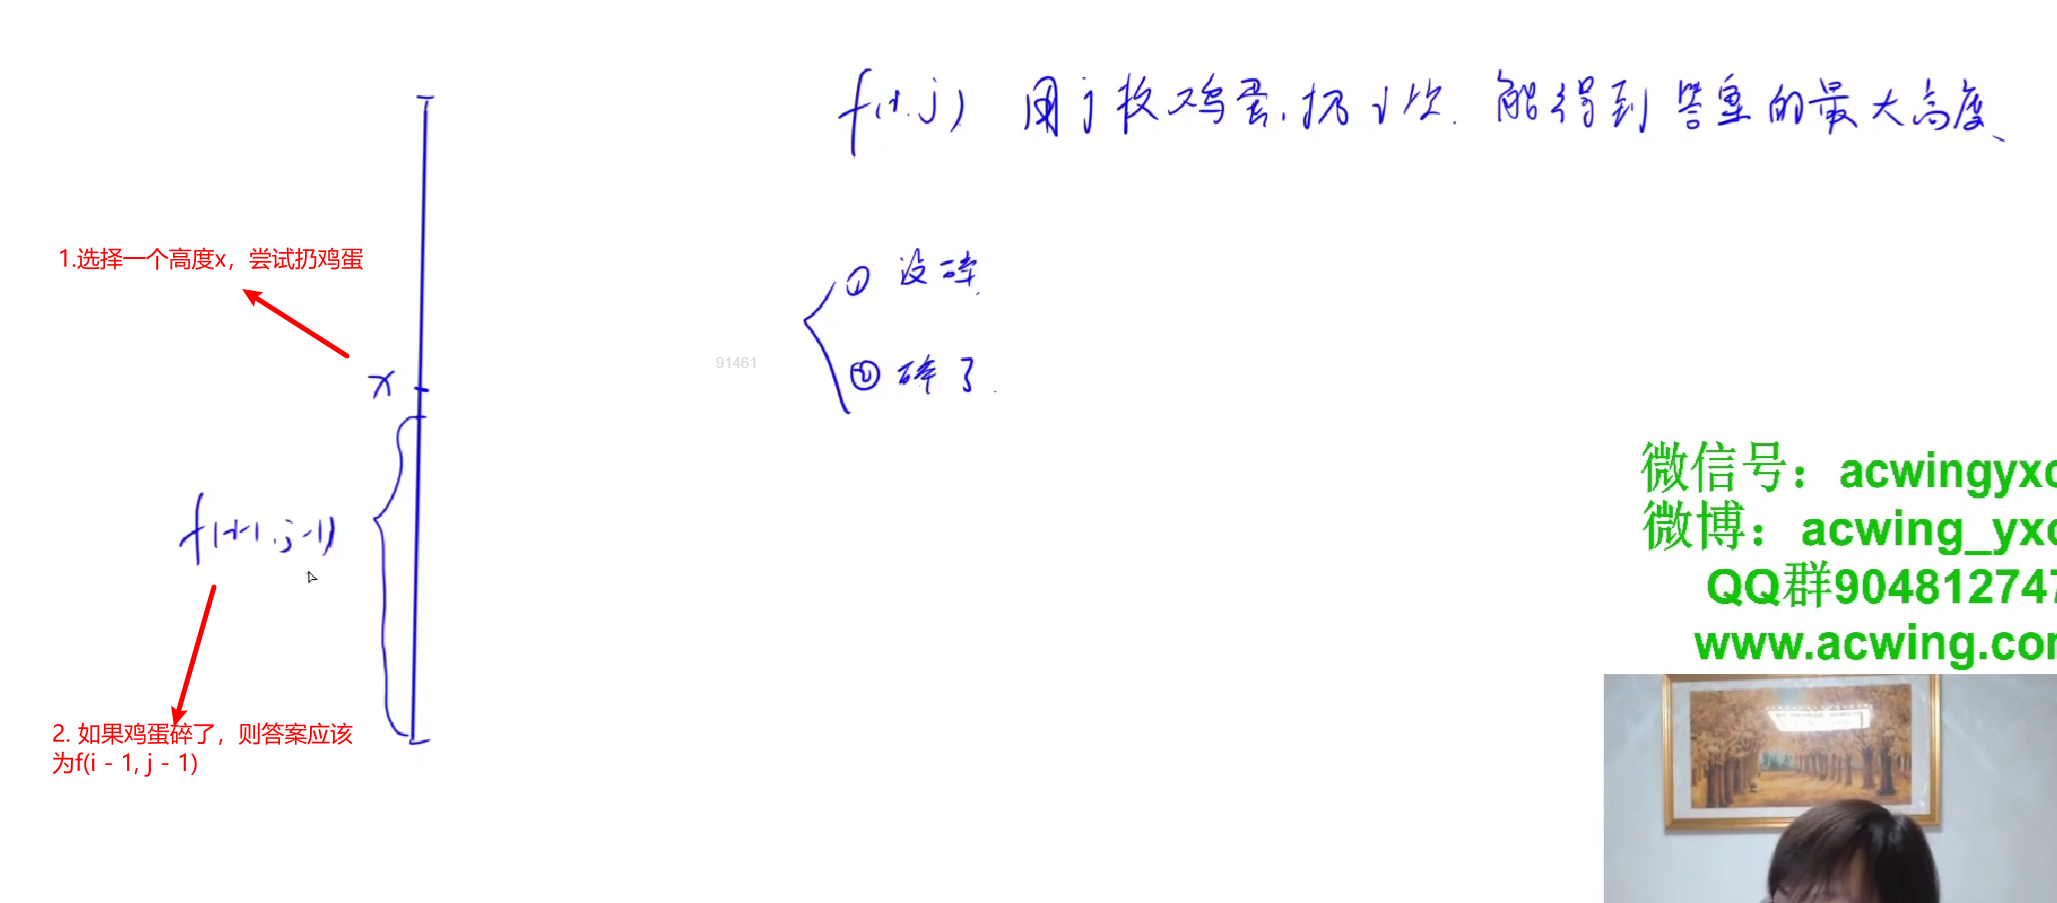 f(i,j) 用j枚鸡蛋,扔i次. 能得到答案的最大高度.
1.选择一个高度x，尝试扔鸡蛋
① 没碎.
② 碎了.
91461
x
f(i-1,j-1)
2. 如果鸡蛋碎了，则答案应该
为f(i - 1, j - 1)
微信号：acwingyxc
微博：acwing_yxc
QQ群904812747
www.acwing.com